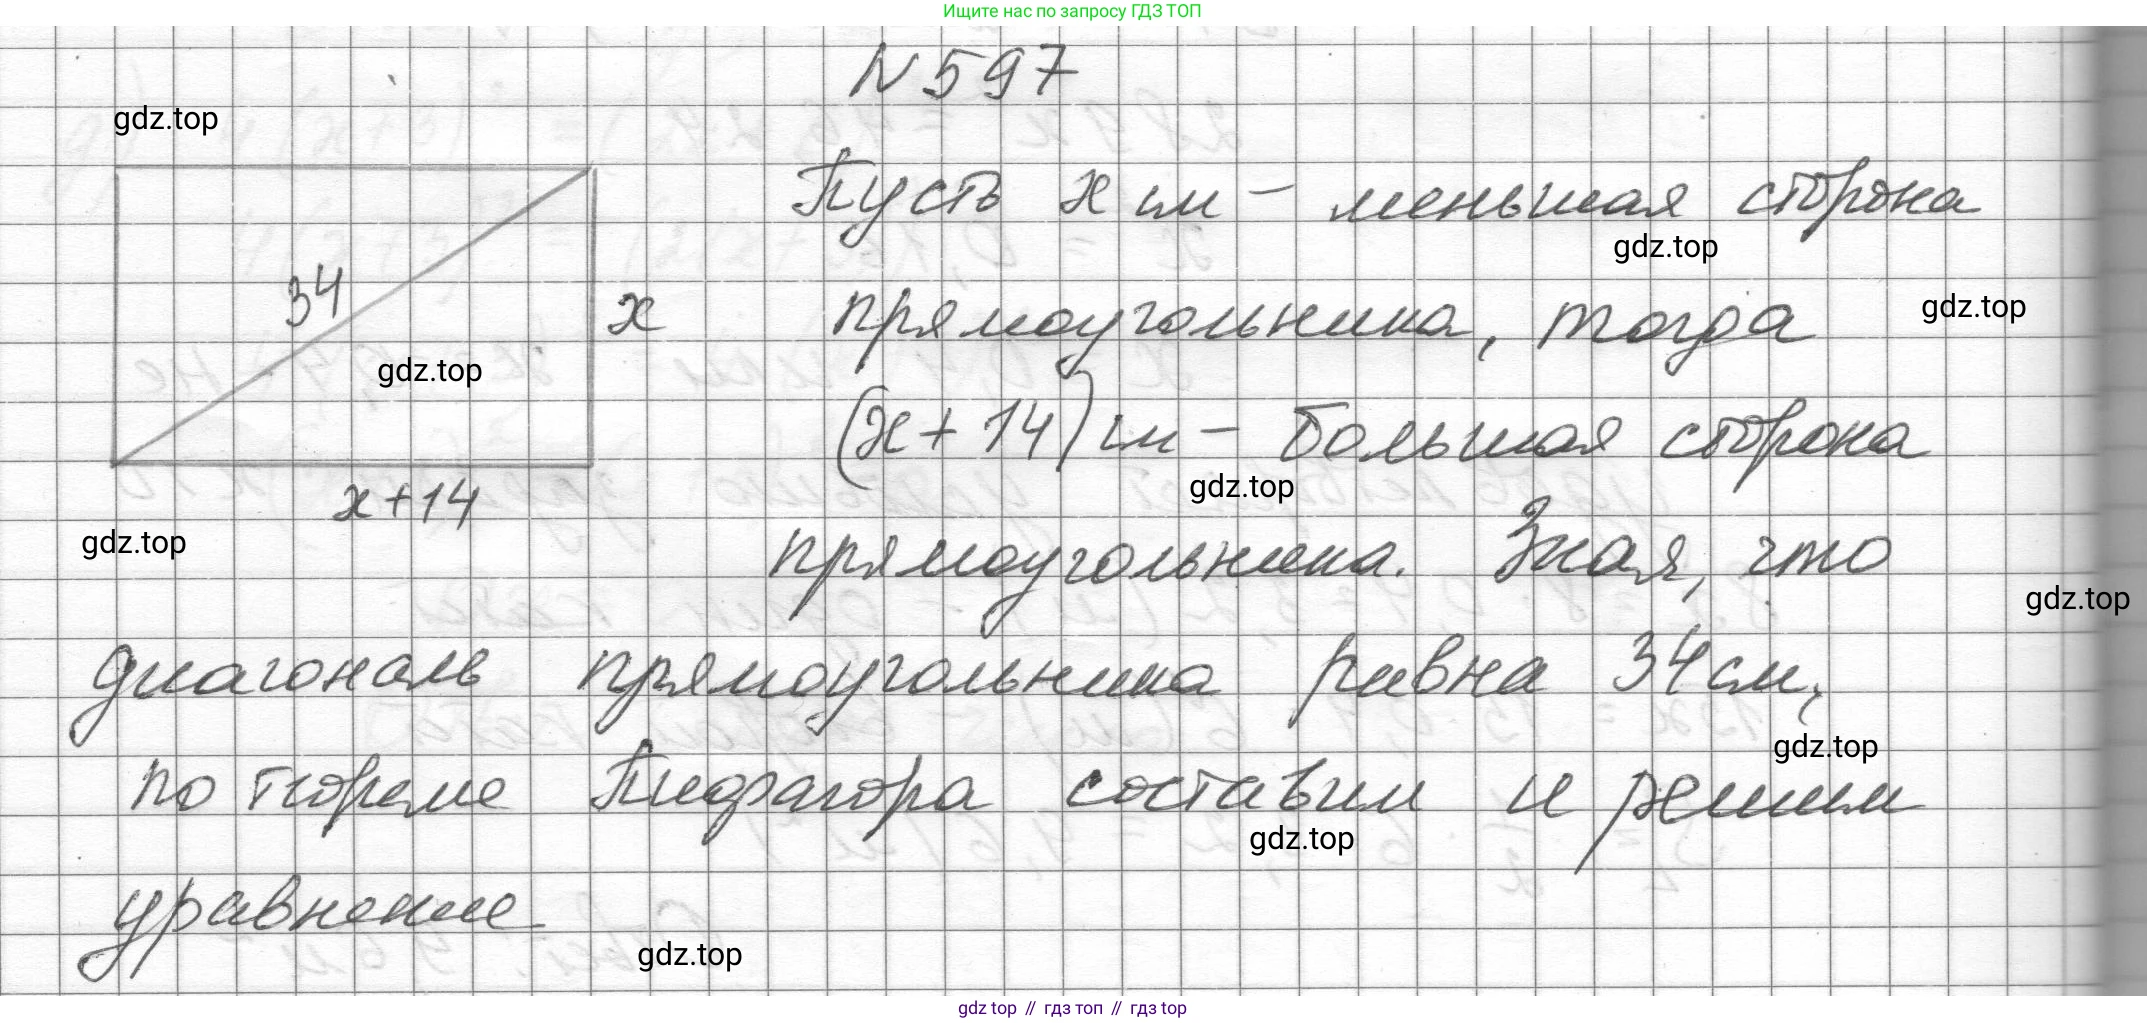 Ищите нас по запросу ГДЗ ТОП
N 597
gdz.top
Пусть x см – меньшая сторона
gdz.top
34
x
прямоугольника, тогда
gdz.top
gdz.top
(x + 14) см – большая сторона
gdz.top
x + 14
gdz.top
прямоугольника. Зная, что
gdz.top
диагональ прямоугольника равна 34 см,
gdz.top
по теореме Пифагора составим и решим
gdz.top
уравнение
gdz.top
gdz top // гдз топ // gdz top